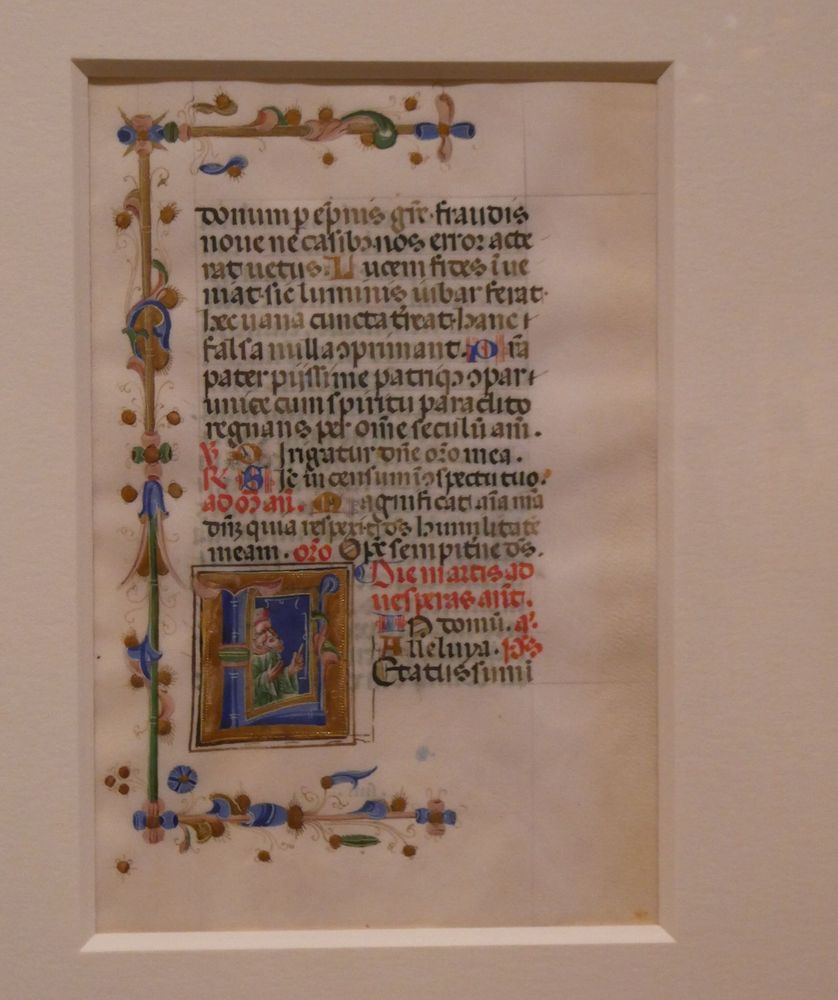 donum p epnis gre · fraudis
noue ne casibꝫ nos error atte
rat uetus · Lucem fides ĩue
niat · sic luminis iubar ferat ·
hec uana cuncta tͬreat · hanc ⁊
falsa nulla ꝯprimant · Pͬra
pater piissime patriqꝫ ꝯpar ⁊
unice cum spiritu paraclito
regnans per ome seculũ am̃ .
℣ Dirigatur dñe orõ mea .
℟ Sic incensum ĩ ꝯspectu tuo .
Magnificat aĩa mea
dñꝫ quia respexit dˢ humilitatē
meam . orõ Opͬs sempitͬne dˢ .
Die martis ad
uesperas añt .
In domũ .
Alleluya . pˢ
Etatis summi